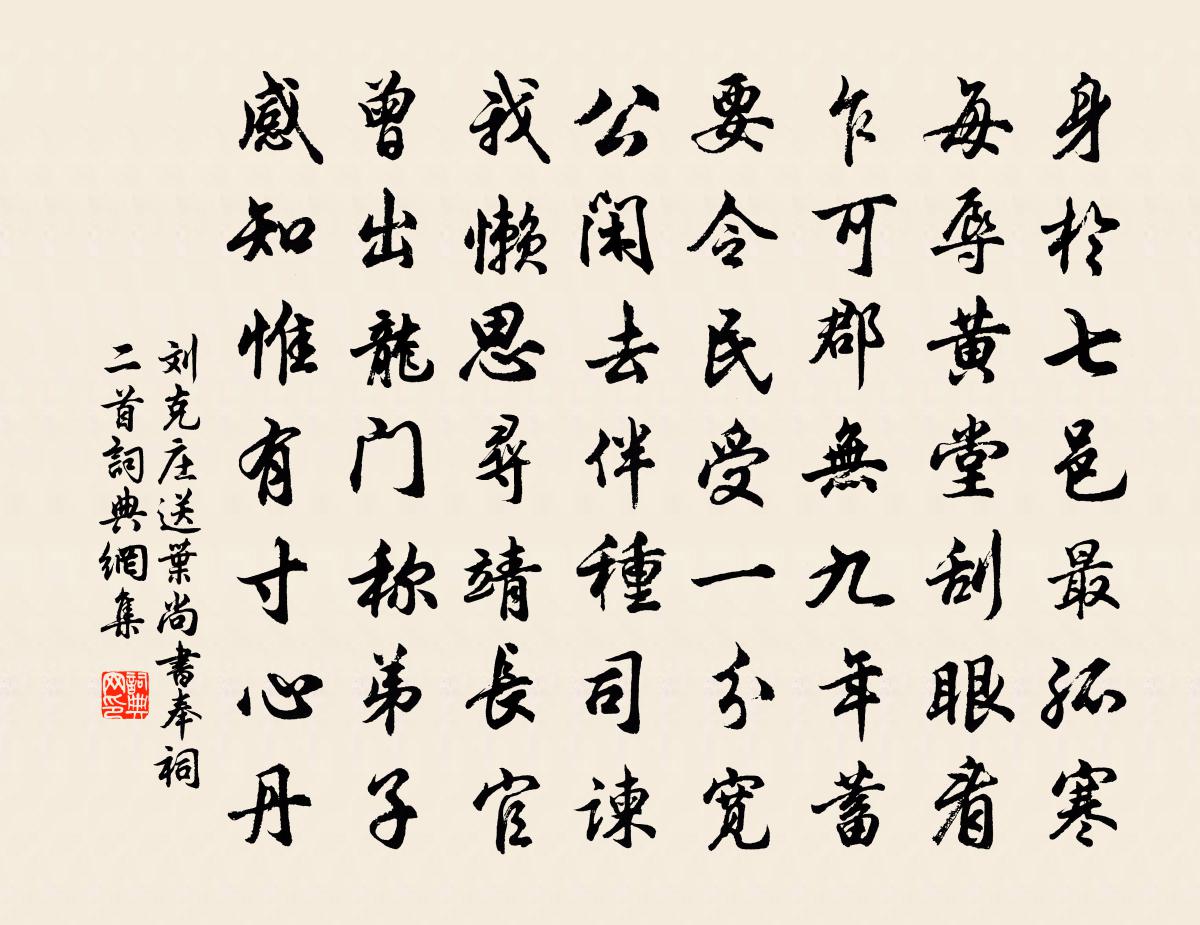 身於七邑最孤寒
每辱黃堂刮眼看
乍可郡無九年蓄
要令民受一分寬
公閑去伴種司諫
我懶思尋靖長官
曾出龍门称弟子
感知惟有寸心丹
刘克庄送葉尚書奉祠
二首詞典網集
詞典网印